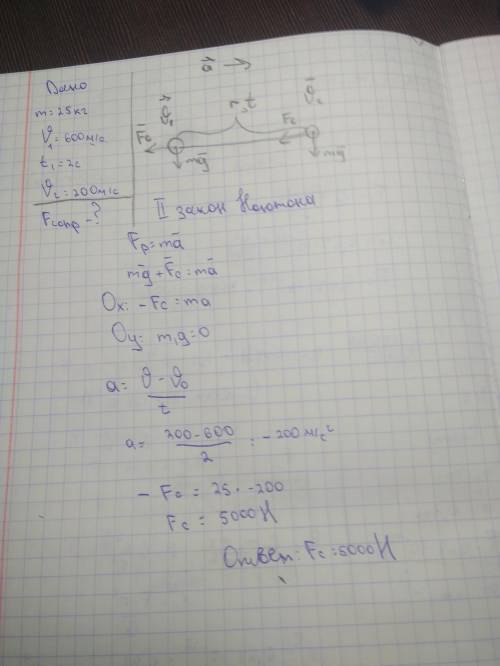 Дано
m = 25кг
v₁ = 600м/с
t₁ = 2с
v₂ = 200м/с
Fсопр - ?
a⃗ →
v⃗₁
t
v̅₂
F̅c
Fc
mg̅
mg̅
II закон Ньютона
Fр = ma̅
mg̅ + F̅c = ma̅
Ox: - Fc = ma
Oy: m₁g = 0
a = v - v₀ / t
a = 200 - 600 / 2 = - 200 м/с²
- Fc = 25 · -200
Fc = 5000 Н
Ответ: Fc = 5000 Н